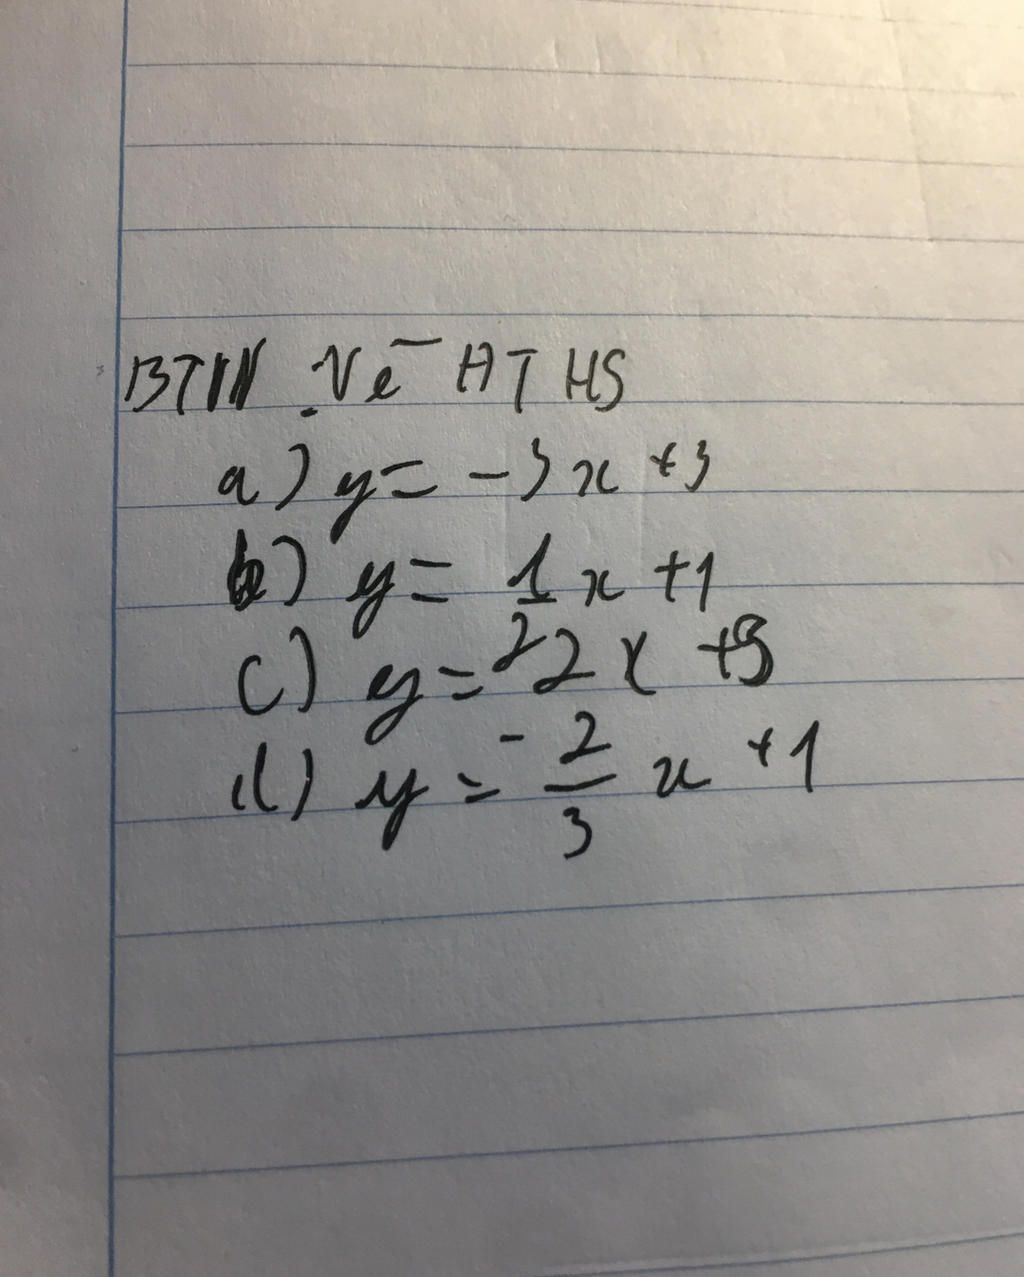 BTVN. Vẽ ĐTHS
a) y = -3x + 3
b) y = 1/2 x + 1
c) y = 2x + 3
d) y = -2/3 x + 1